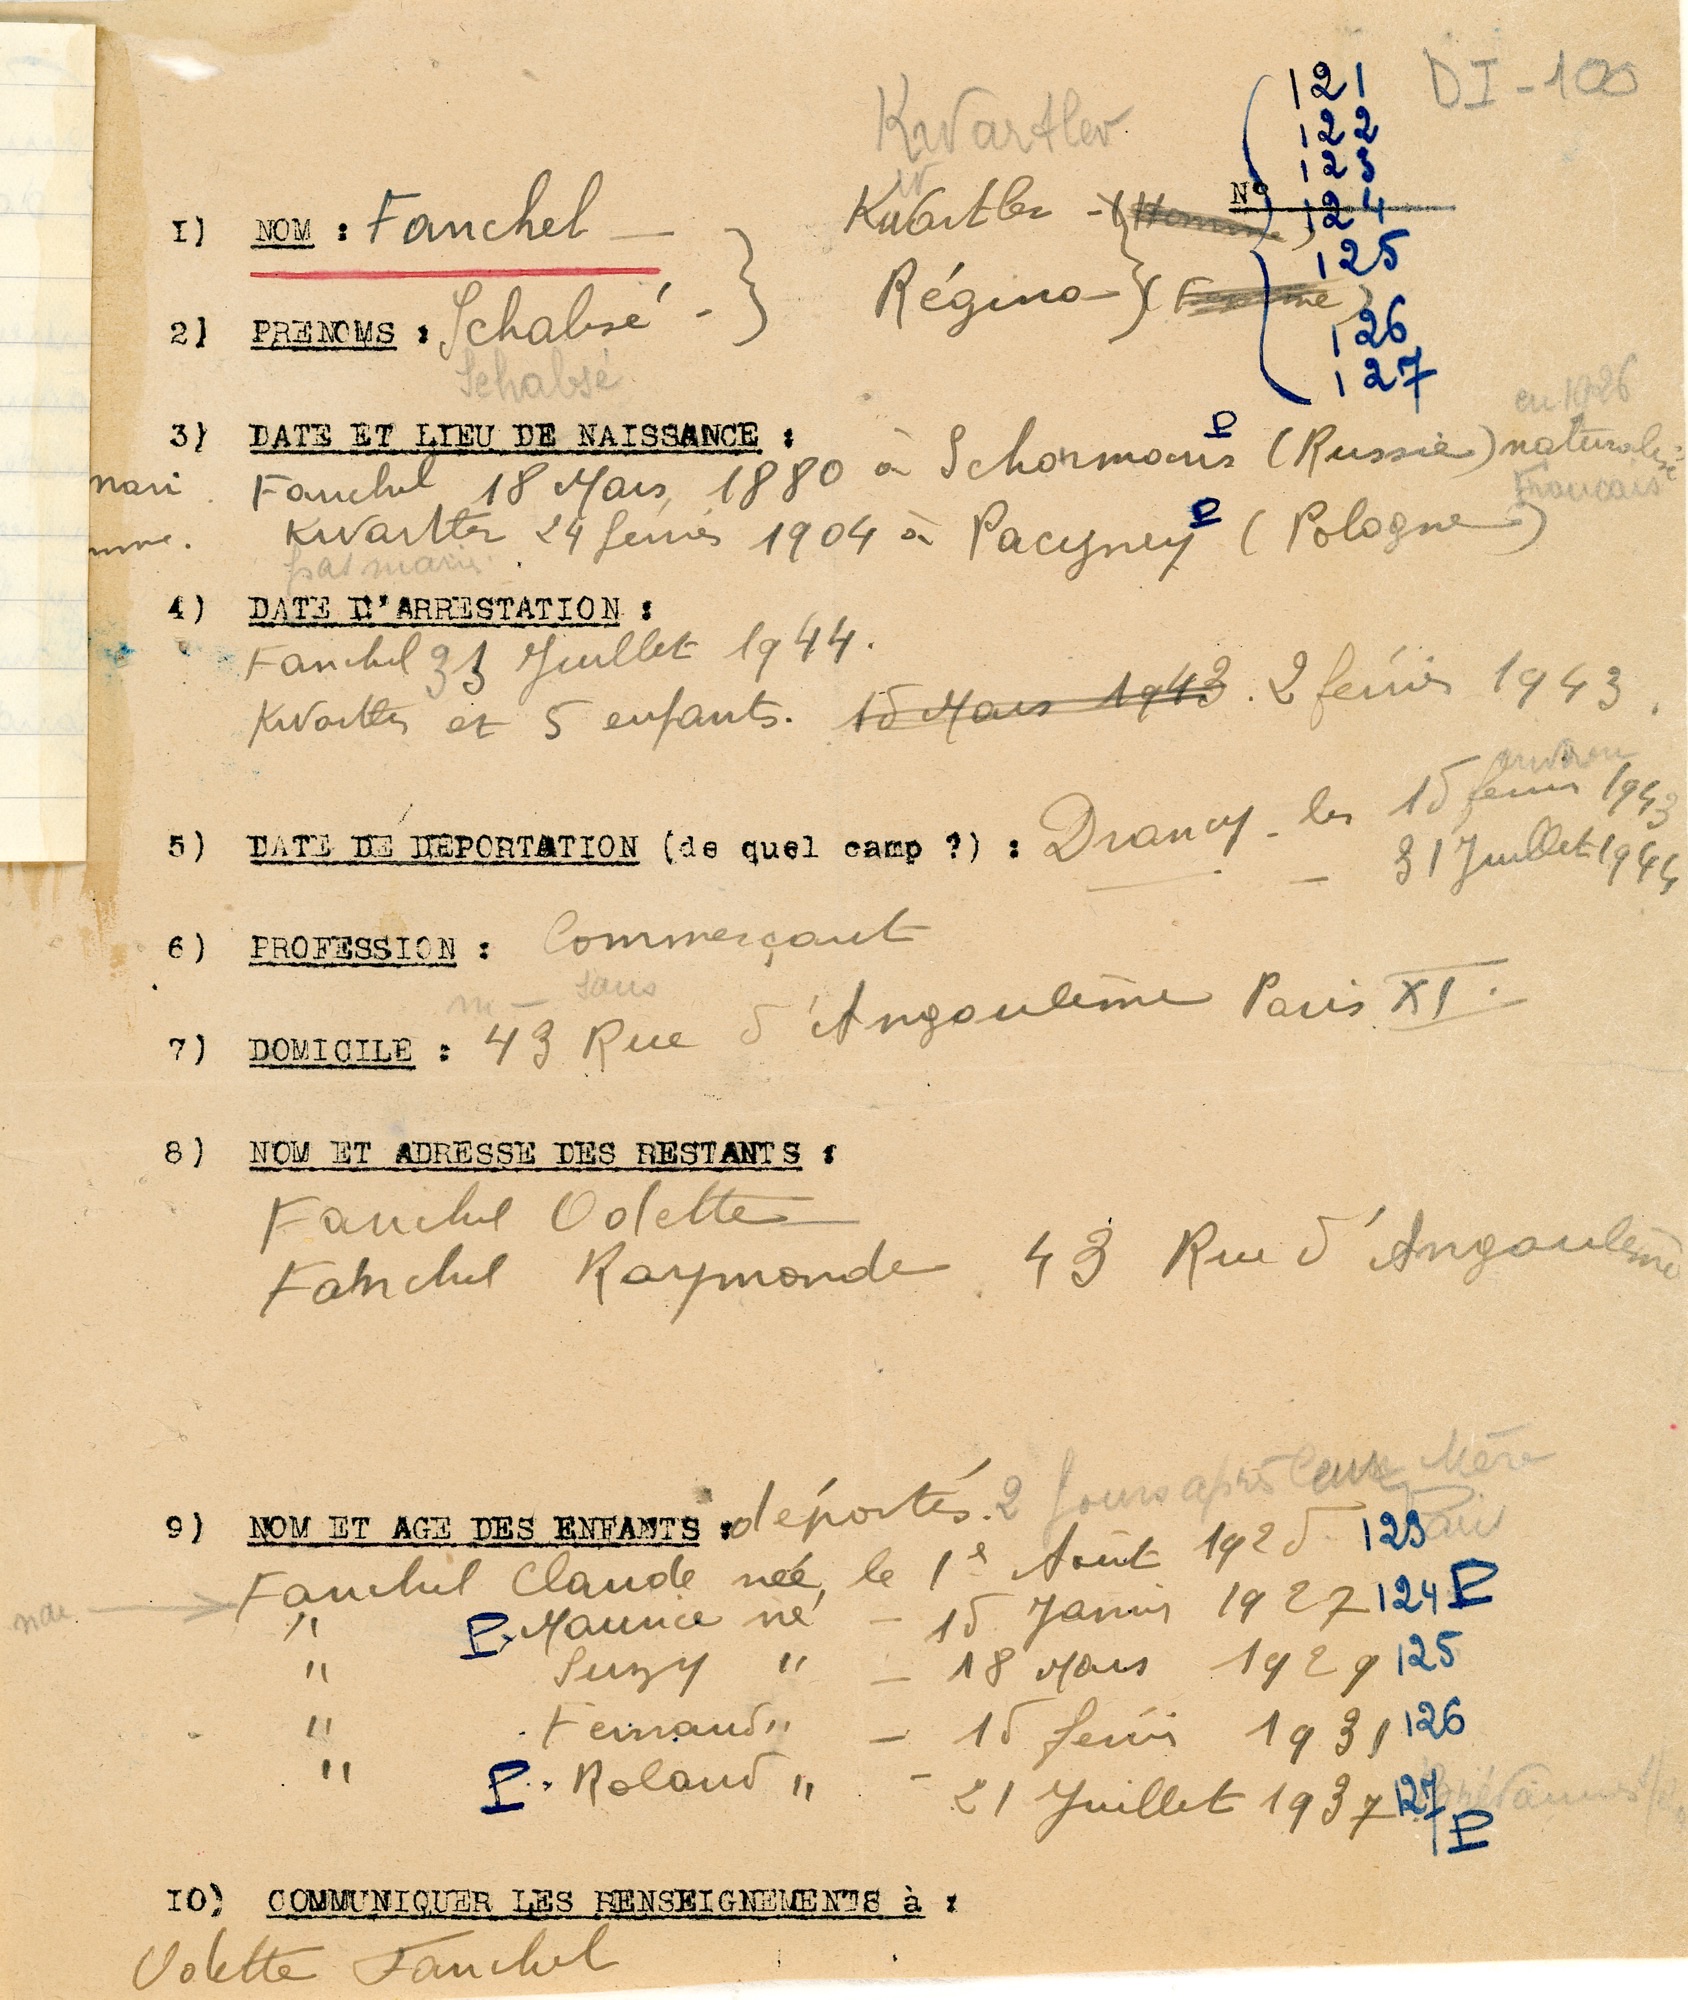 DI - 100
121
122
123
124
125
126
127
Kwartler
N°
1) NOM : Fanchel — Kwartler - (Homme)
2) PRENOMS : Schabsé - Régina - (Femme)
Schabsé
en 1926
naturalisé
Français
3) DATE ET LIEU DE NAISSANCE :
mari. Fanchel 18 Mars 1880 à (Russie)
Kwartler 24 février 1904 à (Pologne)
pas mariés
4) DATE D'ARRESTATION :
Fanchel 31 Juillet 1944.
Kwartler et 5 enfants. 15 Mars 1943. 2 février 1943.
environ
5) DATE DE DEPORTATION (de quel camp ?) : Drancy - les 15 février 1943
— 31 Juillet 1944
6) PROFESSION : Commerçant
m — sans
7) DOMICILE : 43 Rue d'Angoulême Paris XI.
8) NOM ET ADRESSE DES RESTANTS :
Fanchel Odette —
Fanchel Raymonde 43 Rue d'Angoulême
9) NOM ET AGE DES ENFANTS : déportés. 2 jours après leur Mère
Fanchel Claude née, le 1e Août 1925 123 Paris
" P. Maurice né — 15 Janvier 1927 124 P
" Suzy " — 18 Mars 1929 125
" Fernand " — 15 février 1931 126
" P. Roland " — 21 Juillet 1937 127 P
10) COMMUNIQUER LES RENSEIGNEMENTS à :
Odette Fanchel